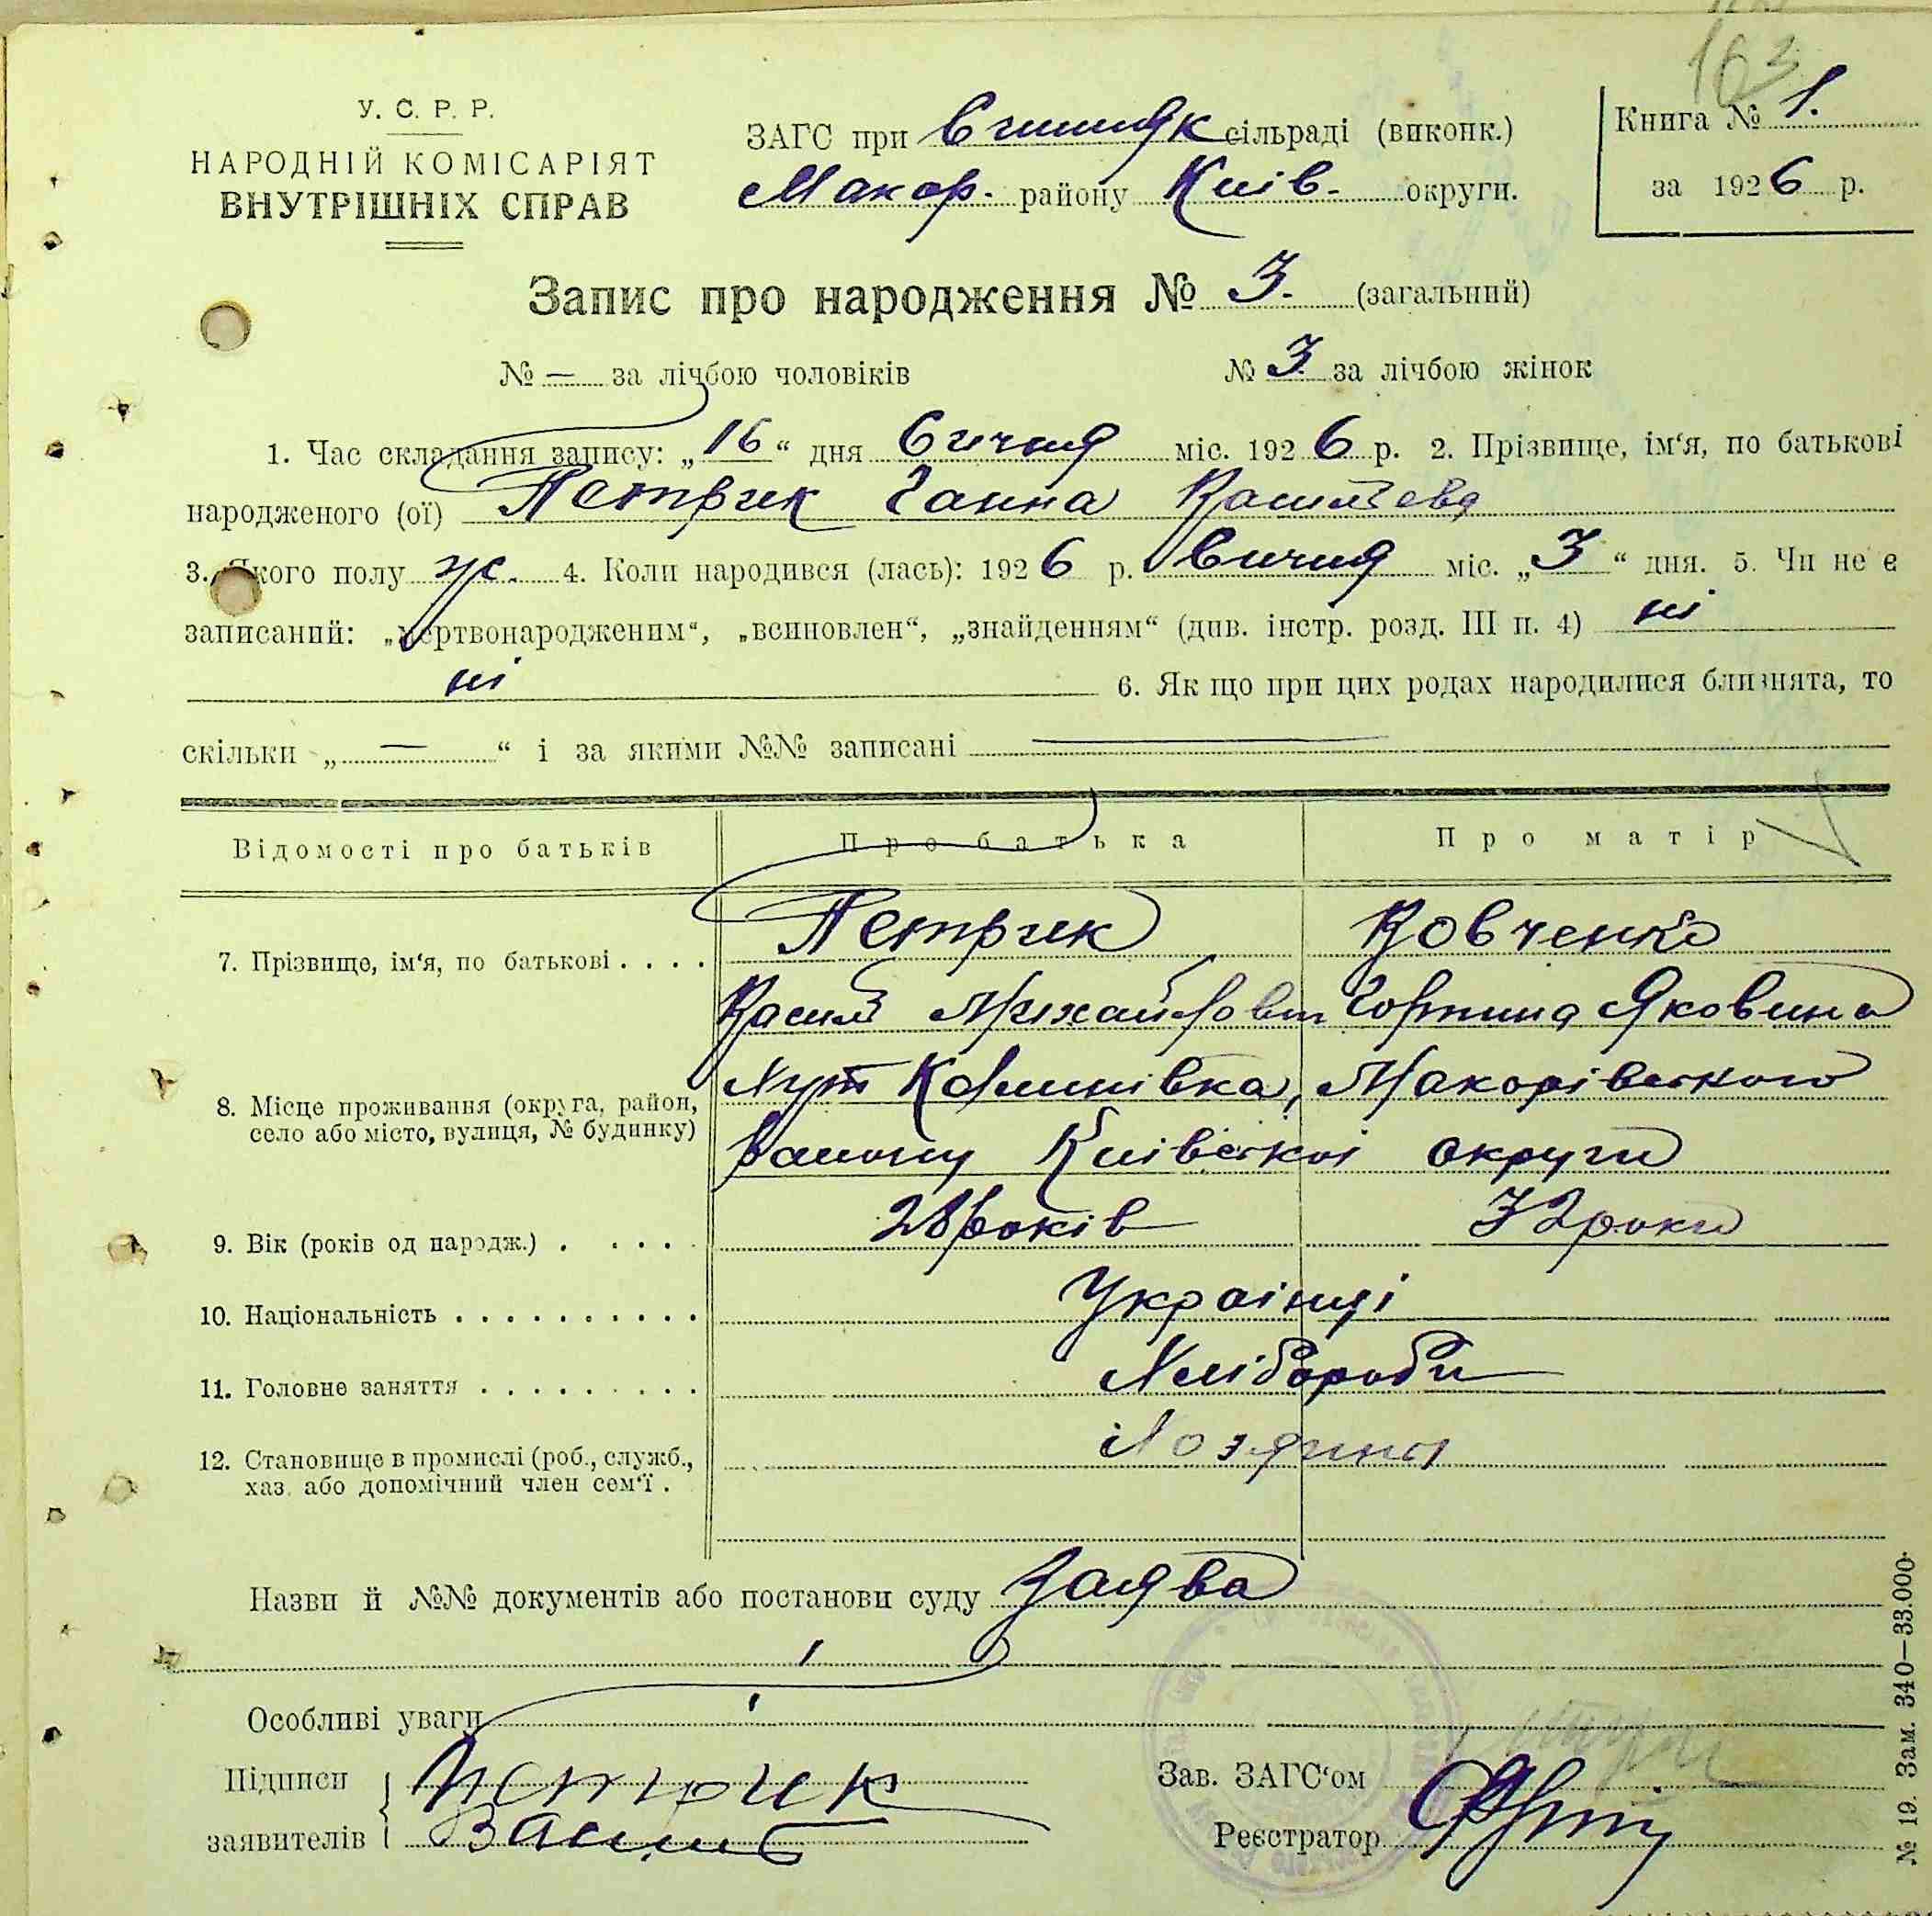 163
У. С. Р. Р.
НАРОДНІЙ КОМІСАРІЯТ
ВНУТРІШНІХ СПРАВ
ЗАГС при сільраді (виконк.)
Макар. району Київ. округи.
Книга № 1.
за 1926 р.
Запис про народження № 3. (загальний)
№ — за лічбою чоловіків № 3 за лічбою жінок
1. Час складання запису: „16“ дня Січня міс. 1926 р. 2. Прізвище, ім‘я, по батькові
народженого (ої) Петрик Ганна Василева
3. Якого полу ж. 4. Коли народився (лась): 1926 р. Січня міс. „3“ дня. 5. Чи не є
записаний: „мертвонародженим“, „всиновлен“, „знайденням“ (див. інстр. розд. III п. 4) ні
ні 6. Як що при цих родах народилися близнята, то
скільки „—“ і за якими №№ записані —
Відомості про батьків Про батька Про матір
7. Прізвище, ім‘я, по батькові . . . . Петрик Вовченко
Василь Михайлович Горпина Яковина
8. Місце проживання (округа, район, село або місто, вулиця, № будинку) Хут Калинівка, Макарівського
району Київської округи
9. Вік (років од народж.) . . . . . 28 років 32 роки
10. Національність . . . . . . . . . . Українці
11. Головне заняття . . . . . . . . . Хлібороби
12. Становище в промислі (роб., служб., хаз. або допомічний член сем‘ї . Хозяини
Назви й №№ документів або постанови суду Заява
Особливі уваги
Підписи Петрик Зав. ЗАГС‘ом
заявителів Василь Реєстратор
№ 19. Зам. 340—33.000.